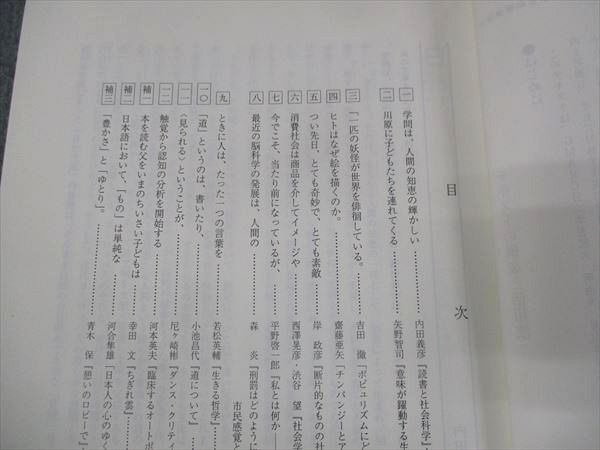 目次
一 学問は、人間の知恵の輝かしい…………内田義彦『読書と社会科学』
二 川原に子どもたちを連れてくる…………矢野智司『意味が躍動する生
三 「一匹の妖怪が世界を徘徊している。…………吉田 徹『ポピュリズムに
四 ヒトはなぜ絵を描くのか。…………齋藤亜矢「チンパンジーとア
五 つい先日、とても奇妙で、とても素敵…………岸 政彦『断片的なものの社
六 消費社会は商品を介してイメージや…………西澤晃彦・渋谷 望『社会学
七 今でこそ、当たり前になっているが、…………平野啓一郎『私とは何か――
八 最近の脳科学の発展は、人間の…………森 炎『刑罰はどのように
市民感覚と
九 ときに人は、たった一つの言葉を…………若松英輔『生きる哲学』
一〇 「道」というのは、書いたり、…………小池昌代「道について」
一一 〈見られる〉ということが、…………尼ヶ崎彬『ダンス・クリティ
一二 触覚から認知の分析を開始する…………河本英夫『臨床するオートポ
補一 本を読む父をいまのちいさい子どもは…………幸田 文『ちぎれ雲』
補二 日本語において、「もの」は単純な…………河合隼雄『日本人の心のゆく
補三 「豊かさ」と「ゆとり」。…………青木 保『憩いのロビーで』